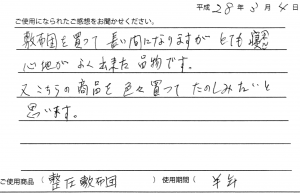 平成28年3月4日
ご使用になられたご感想をお聞かせください。
敷布団を買って長い間になりますがとても寝
心地がよく出来た品物です。
又こちらの商品を色々買ってたのしみたいと
思います。
ご使用商品(整圧敷布団)使用期間(半年)